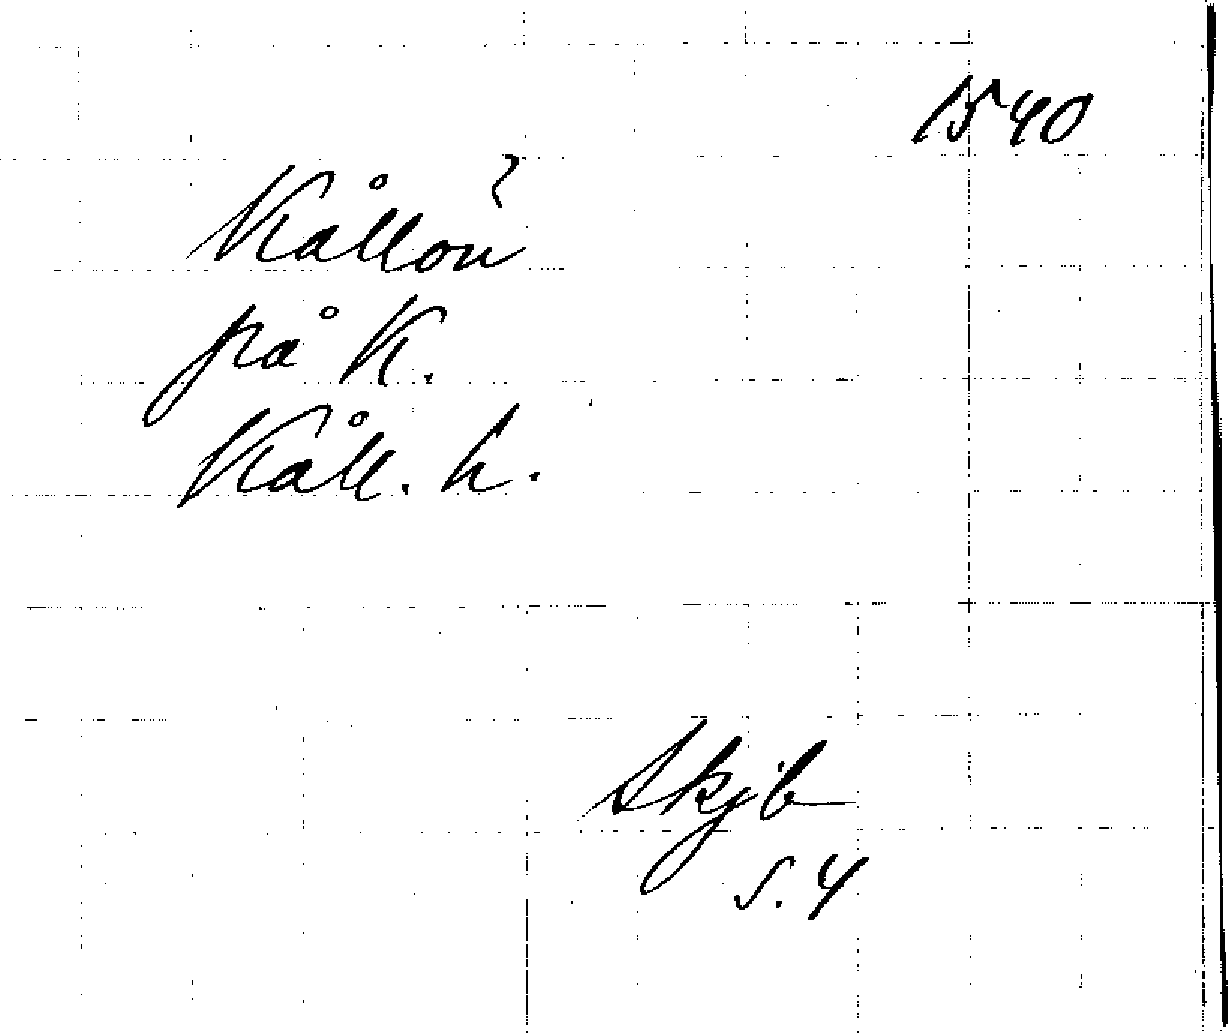 1540
Kållon
på K.
Kåll. h.
Skjb
s. 4